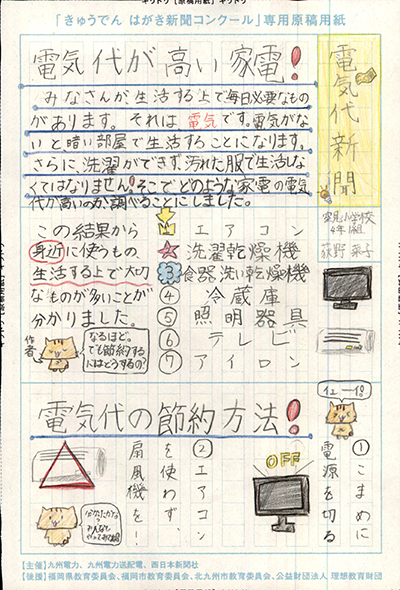 「きゅうでん はがき新聞コンクール」専用原稿用紙
電気代新聞
電気代が高い家電！
みなさんが生活する上で毎日必要なもの
があります。それは電気です。電気がな
いと、暗い部屋で生活することになります。
さらに、洗濯ができず、汚れた服で生活しな
くてはなりません！そこでどのような家電の電気
代が高いのか調べることにしました。
小学校
4年1組
荻野 菜子
エアコン
洗濯乾燥機
③食器洗い乾燥機
④冷蔵庫
⑤照明器具
⑥テレビ
⑦アイロン
この結果から
身近に使うもの、
生活する上で大切
なものが多いことが
分かりました。
作者
なるほど。
でも節約する
にはどうするの？
電気代の節約方法！
①こまめに
電源を切る
OFF
②エアコン
を使わず、
扇風機を！
【主催】九州電力、九州電力送配電、西日本新聞社
【後援】福岡県教育委員会、福岡市教育委員会、北九州市教育委員会、公益財団法人 理想教育財団